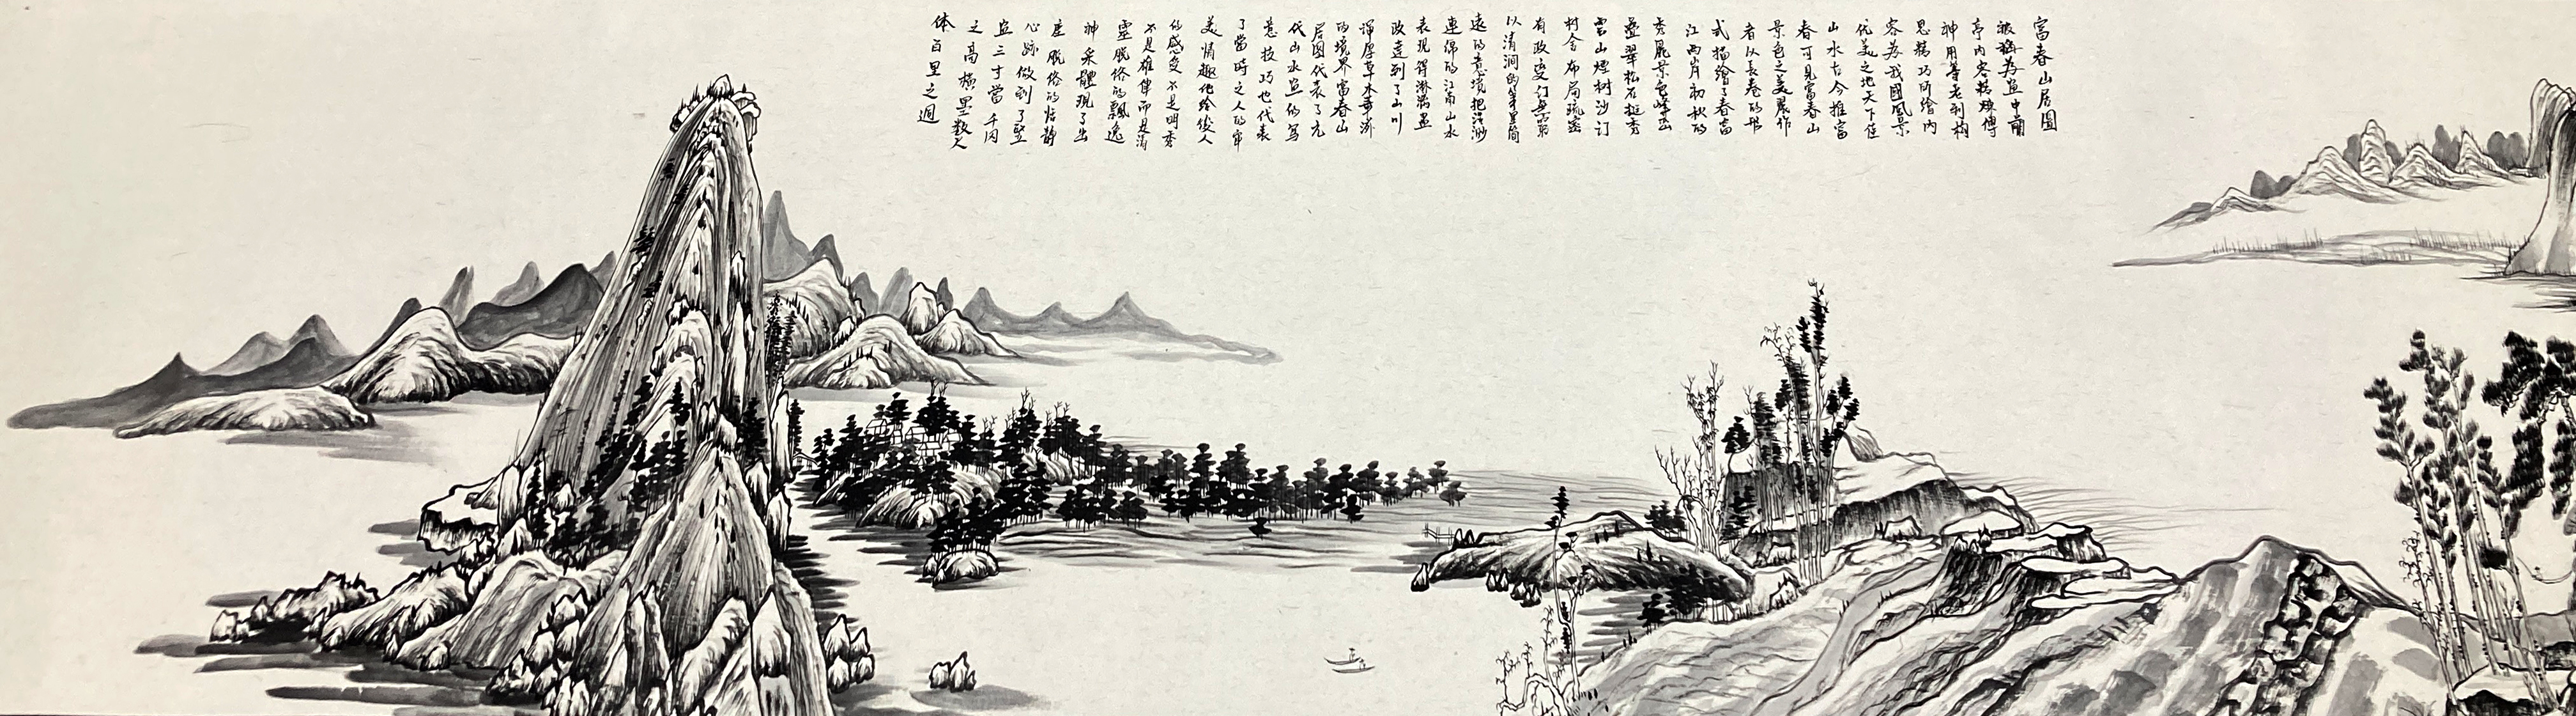 富春山居圖
被稱为畫中蘭
亭内容精煉傳
神用筆老到構
思精巧所繪内
容为我國風景
优美之地天下佳
山水古今推富
春可見富春山
景色之美作
者以長卷的形
式描繪了春富
江两岸初秋的
秀麗景色峰峦
叠翠松石挺秀
雲山煙树沙汀
村舍布局疏密
有致变幻無窮
以清润的筆墨简
遠的意境把浩渺
連绵的江南山水
表现得淋漓盡
致達到了山川
渾厚草木華滋
的境界富春山
居图代表了元
代山水畫的写
意技巧也代表
了當時之人的审
美情趣他给後人
的感受不是明秀
不是雄偉而是清
靈脱俗的飄逸
神采體现了出
塵脱俗的恬静
心跡做到了竪
畫三寸當千仞
之高横墨数尺
体百里之迥